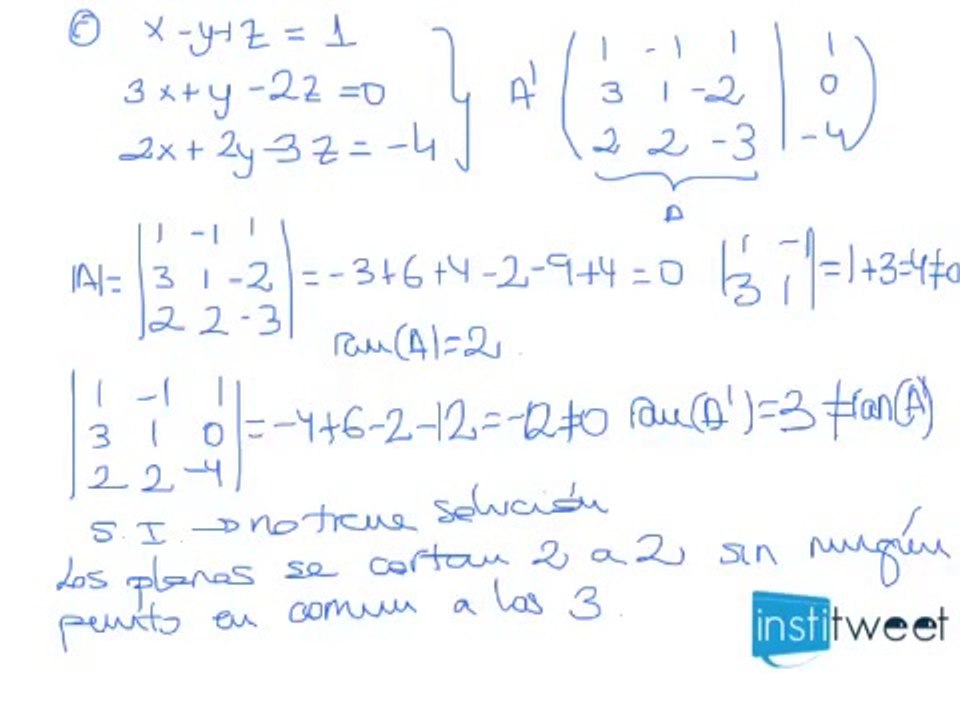 Ⓒ x - y + z = 1
3x + y - 2z = 0
2x + 2y - 3z = -4
A' ( 1 -1 1 | 1
3 1 -2 | 0
2 2 -3 | -4 )
A
|A| = | 1 -1 1
3 1 -2
2 2 -3 | = -3+6+4-2-9+4 = 0
| 1 -1
3 1 | = 1+3=4≠0
ran(A)=2
| 1 -1 1
3 1 0
2 2 -4 | = -4+6-2-12=-12≠0 ran(A')=3 ≠ran(A)
S.I. → no tiene solución
Los planos se cortan 2 a 2 sin ningún
punto en comun a los 3.
institweet